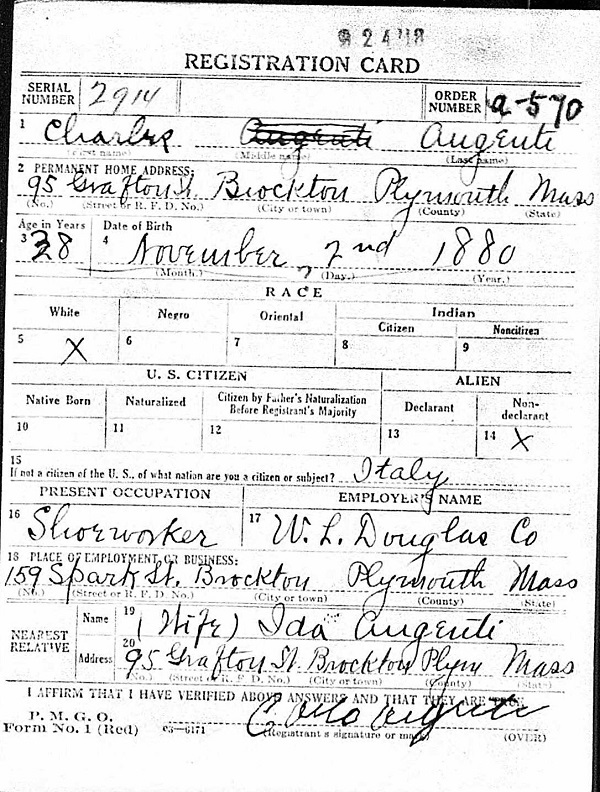 9 24 18
REGISTRATION CARD
SERIAL NUMBER 2914 ORDER NUMBER a-570
1 Charles Augenti Augenti
(First name) (Middle name) (Last name)
2 PERMANENT HOME ADDRESS:
95 Grafton St. Brockton Plymouth Mass
(No.) (Street or R. F. D. No.) (City or town) (County) (State)
Age in Years Date of Birth
3 38 4 November 2nd 1880
(Month.) (Day.) (Year.)
RACE
White Negro Oriental Indian
Citizen Noncitizen
5 X 6 7 8 9
U. S. CITIZEN ALIEN
Native Born Naturalized Citizen by Father's Naturalization Before Registrant's Majority Declarant Non-declarant
10 11 12 13 14 X
15
If not a citizen of the U. S., of what nation are you a citizen or subject? Italy
PRESENT OCCUPATION EMPLOYER'S NAME
16 Shoeworker 17 W. L. Douglas Co
18 PLACE OF EMPLOYMENT OR BUSINESS:
159 Spark St. Brockton Plymouth Mass
(No.) (Street or R. F. D. No.) (City or town) (County) (State)
NEAREST RELATIVE
Name 19 (Wife) Ida Augenti
Address 20 95 Grafton St. Brockton Plym Mass
(No.) (Street or R. F. D. No.) (City or town) (County) (State)
I AFFIRM THAT I HAVE VERIFIED ABOVE ANSWERS AND THAT THEY ARE TRUE
P. M. G. O.
Form No. 1 (Red) 03-6171 Carlo Augenti
(Registrant's signature or mark) (OVER)